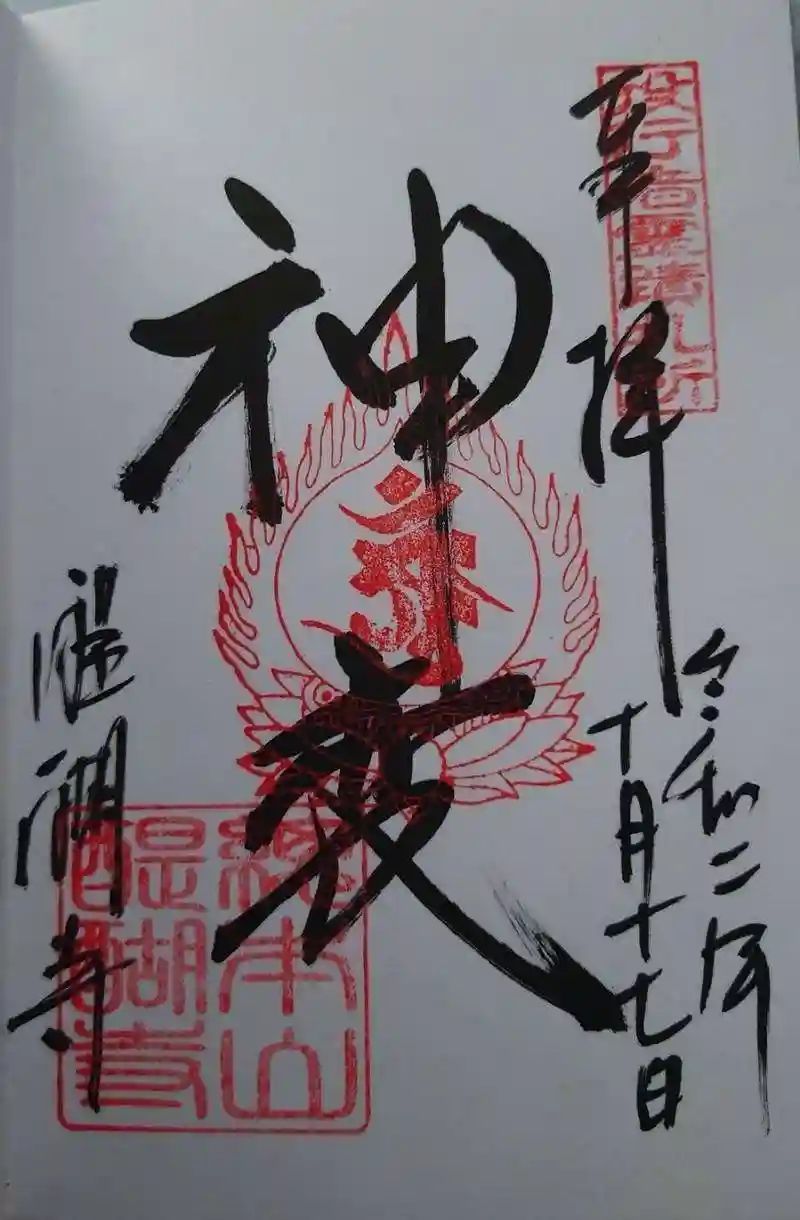 奉拝
役行者霊蹟札所
令和二年
十月十七日
神変
醍醐寺
總本山
醍醐寺